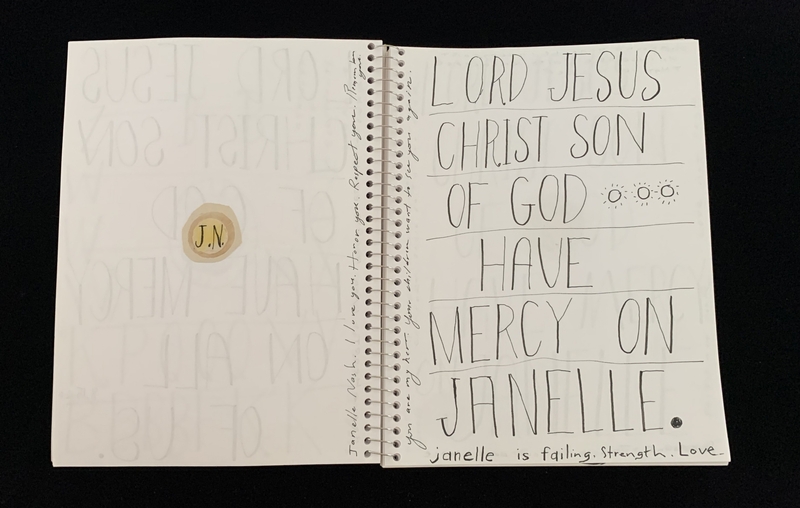 J.N.
Janelle Nash. I love you. Honor you. Respect you. Remember you.
you are my hero. Your children want to see you again.
LORD JESUS
CHRIST SON
OF GOD
HAVE
MERCY ON
JANELLE.
janelle is failing. Strength. Love.